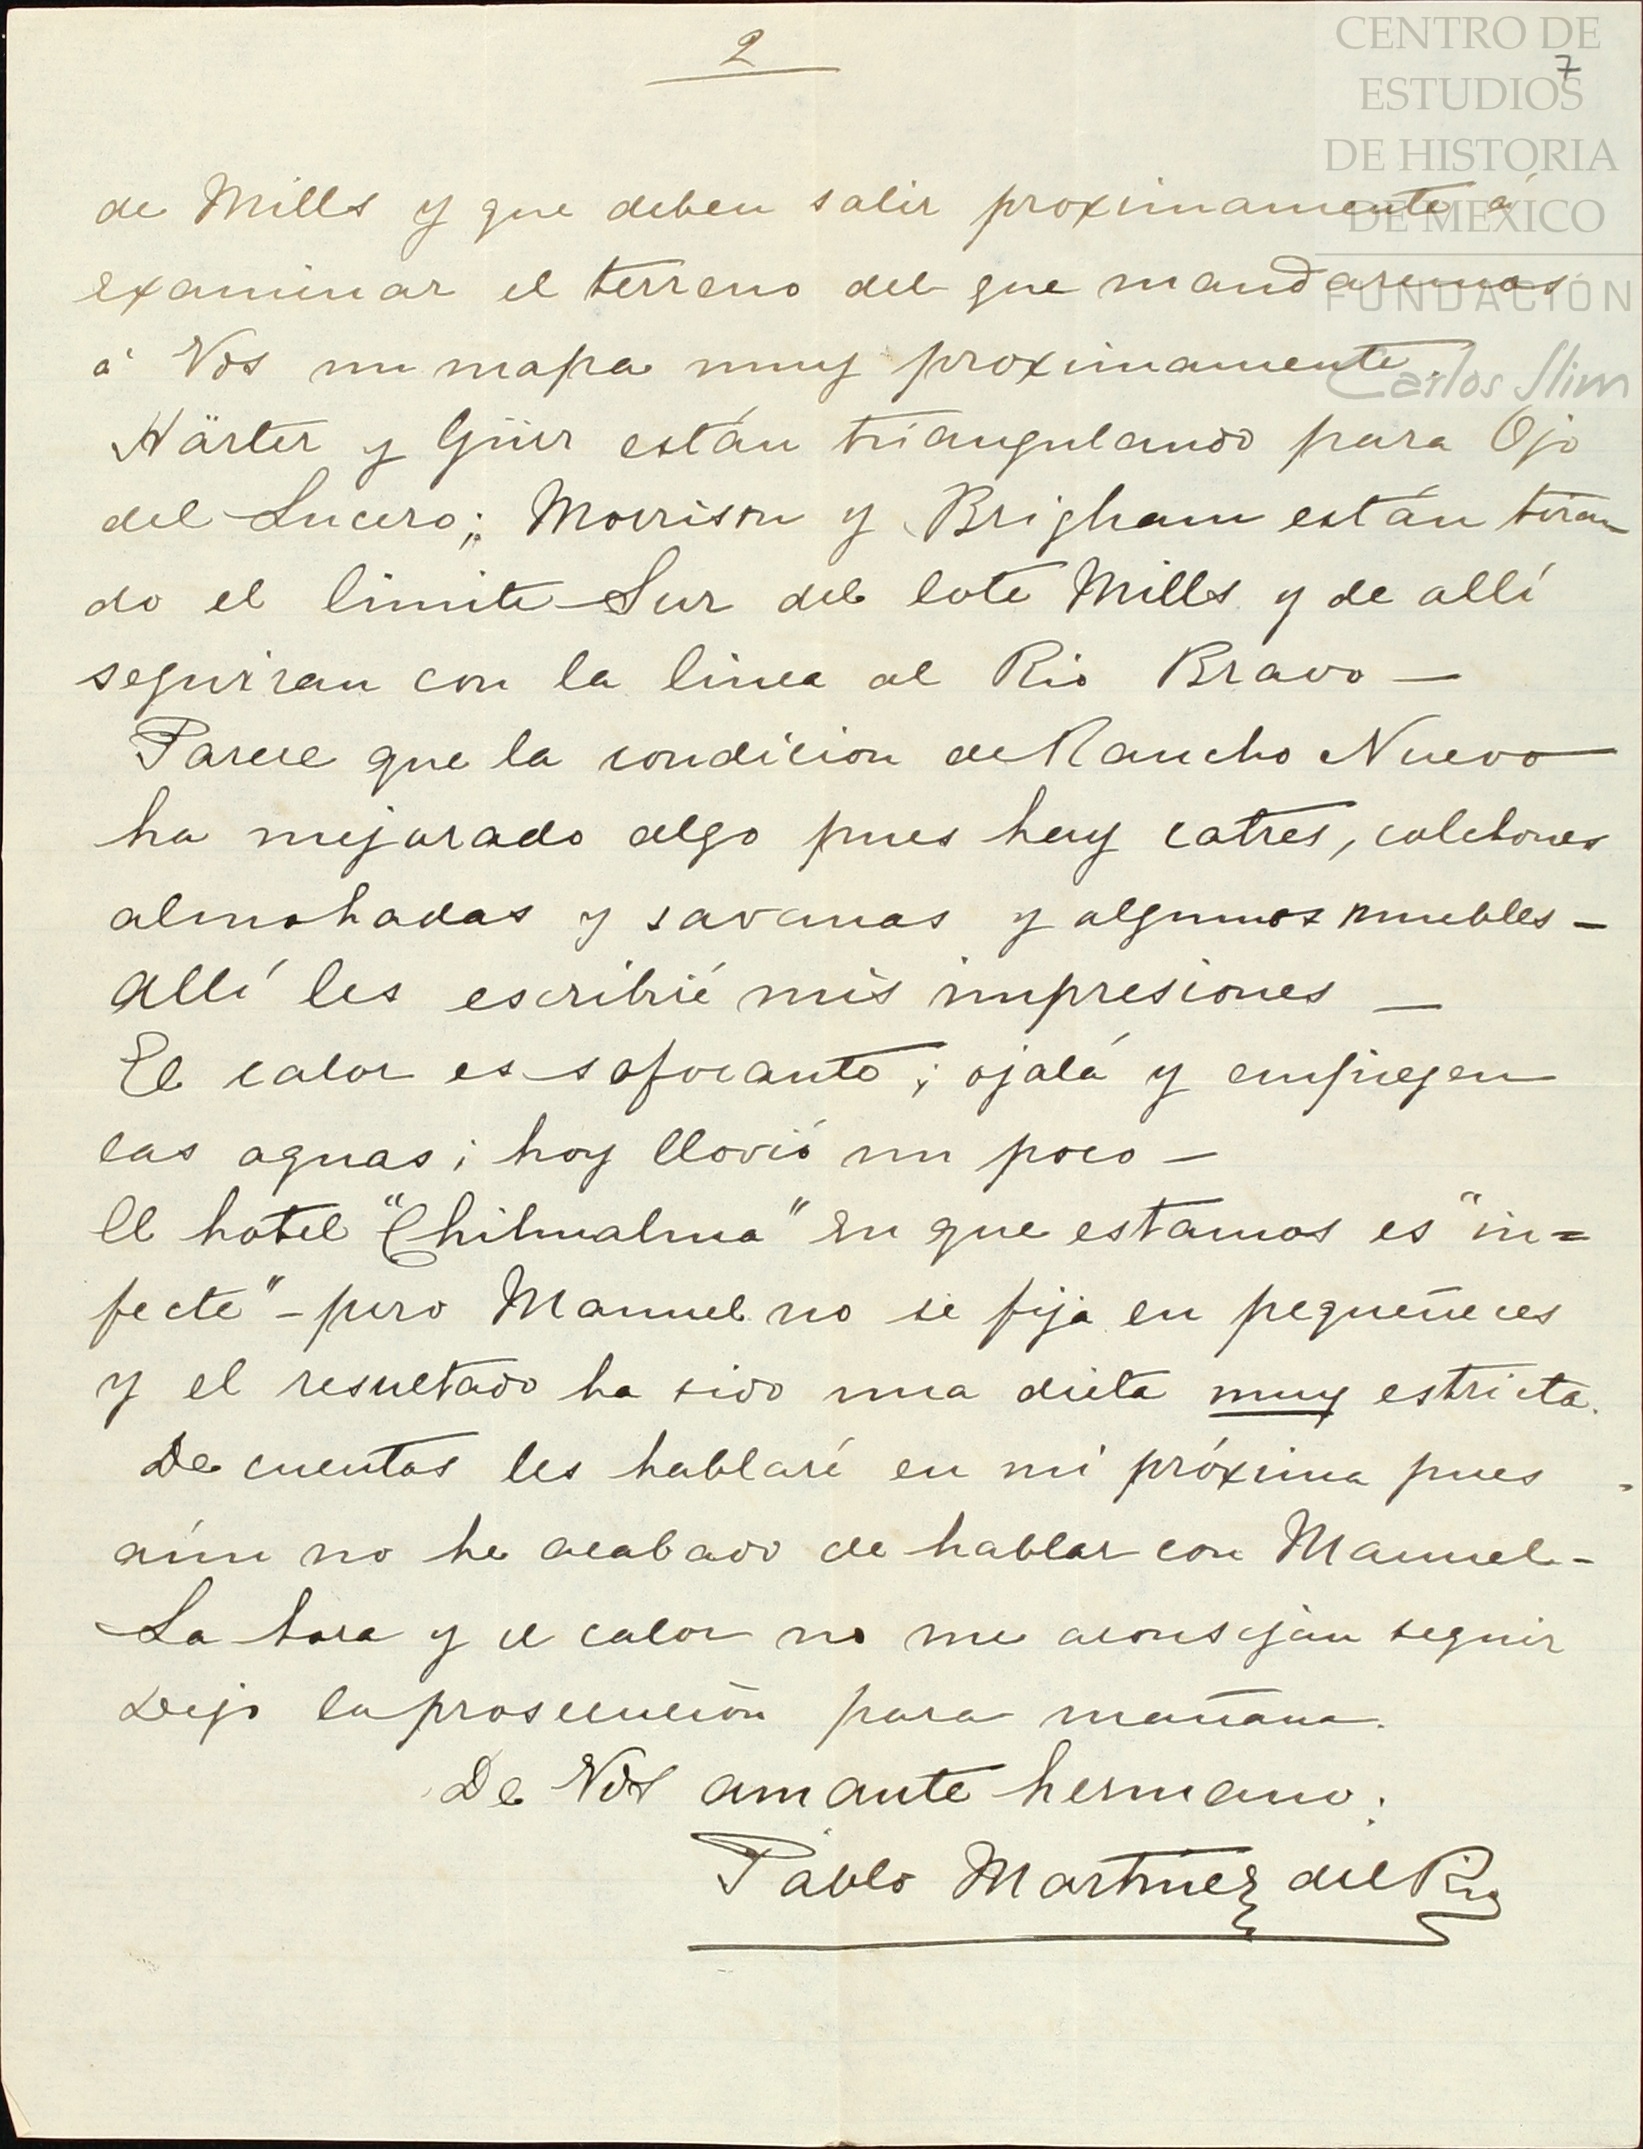 2
7
CENTRO DE
ESTUDIOS
DE HISTORIA
DE MEXICO
FUNDACIÓN
Carlos Slim
de Mills y que deben salir proximamente á
examinar el terreno del que mandaremos
á Vds un mapa muy proximamente.
Härter y Güer están triangulando para Ojo
del Lucero; Morrison y Brigham están tiran
do el limite Sur del lote Mills y de allí
seguiran con la linea al Rio Bravo —
Parece que la condicion de Rancho Nuevo
ha mejorado algo pues hay catres, colchones
almohadas y savanas y algunos muebles —
allí les escribiré mis impresiones —
El calor es sofocante; ojalá y empiezen
las aguas; hoy llovió un poco —
El hotel "Chilmalma" en que estamos es "in=
fecte" - pero Manuel no se fija en pequeñeces
y el resultado ha sido una dieta muy estricta.
De cuentas les hablaré en mi próxima pues
aún no he acabado de hablar con Manuel -
La hora y el calor no me aconsejan seguir
Dejo la prosecución para mañana.
De Vds amante hermano.
Pablo Martínez del Rio